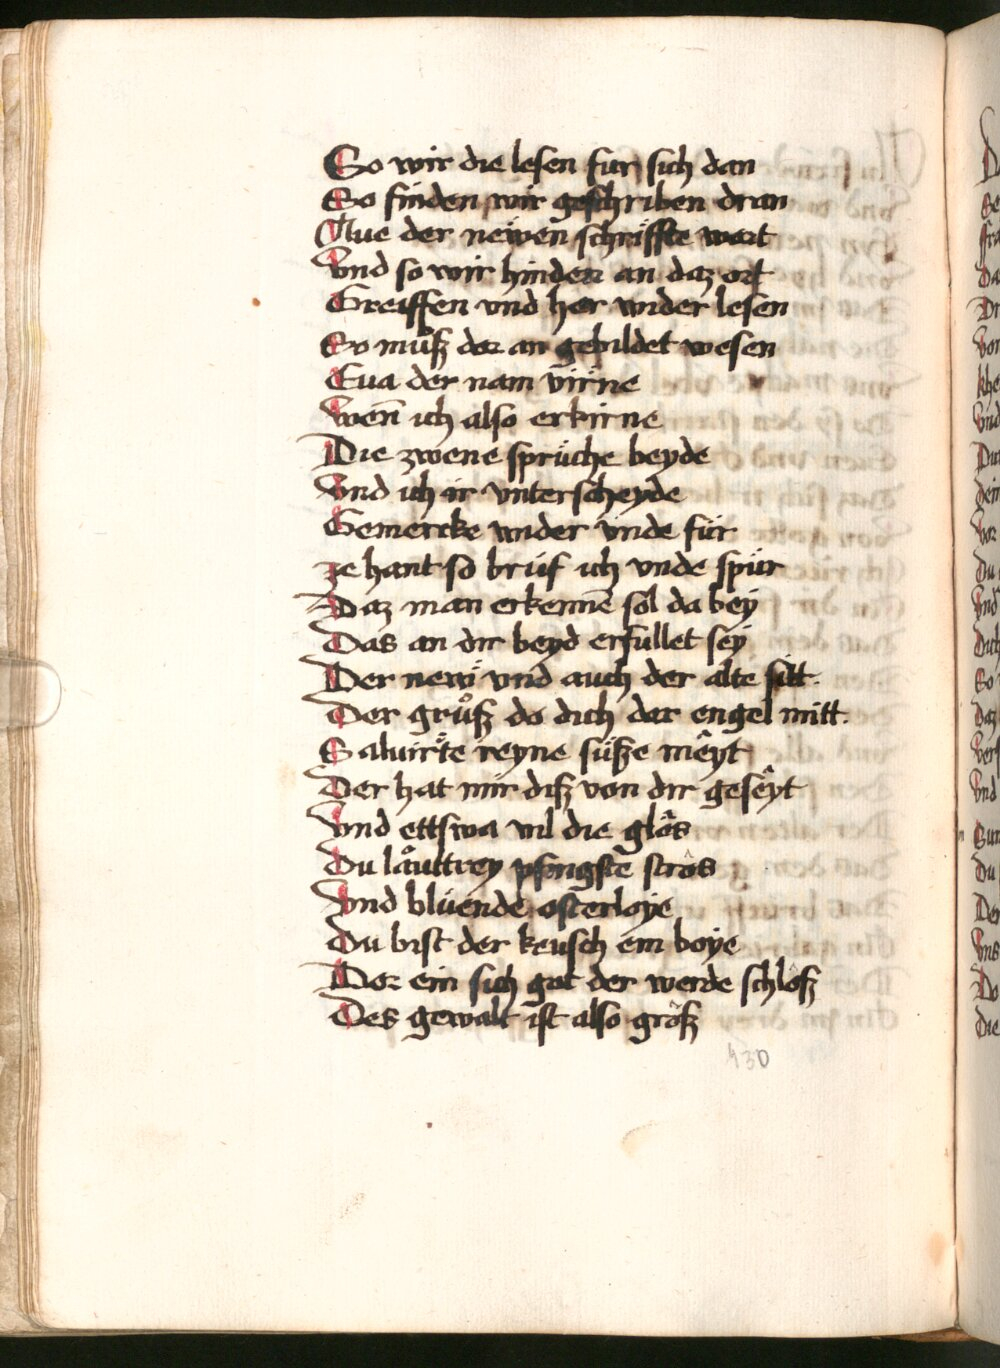 So wir die lesen fur sich dan
So finden wir geschriben dran
Aue der neẅen schrifftte wort
Vnd so wir hinden an daz ort
Greiffen vnd her wider lesen
So mů̈ß dar an gebildet wesen
Eua der nam virne
wen̄ ich also erkirne
Die zwene sprüche beyde
Vnd ich ir vnterscheyde
Gemercke wider vnde für
ze hant so brüf ich vnde spür
Daz man erkennē sol da beÿ
Das an dir beyd erfullet seÿ
Der new vnd auch der alte sitt.
Der grůß do dich der engel mitt.
Saluirte reyne süße mêyt
Der hat mir diß von dir gesêyt
Vnd ettswa vil die glôs
Du låuttrey pfingste scrôs
Vnd blüende osterloÿe
Du bist der keusch ein boÿe
Dor ein sich got der werde schlôß
Des gewalt ist also grôß
130